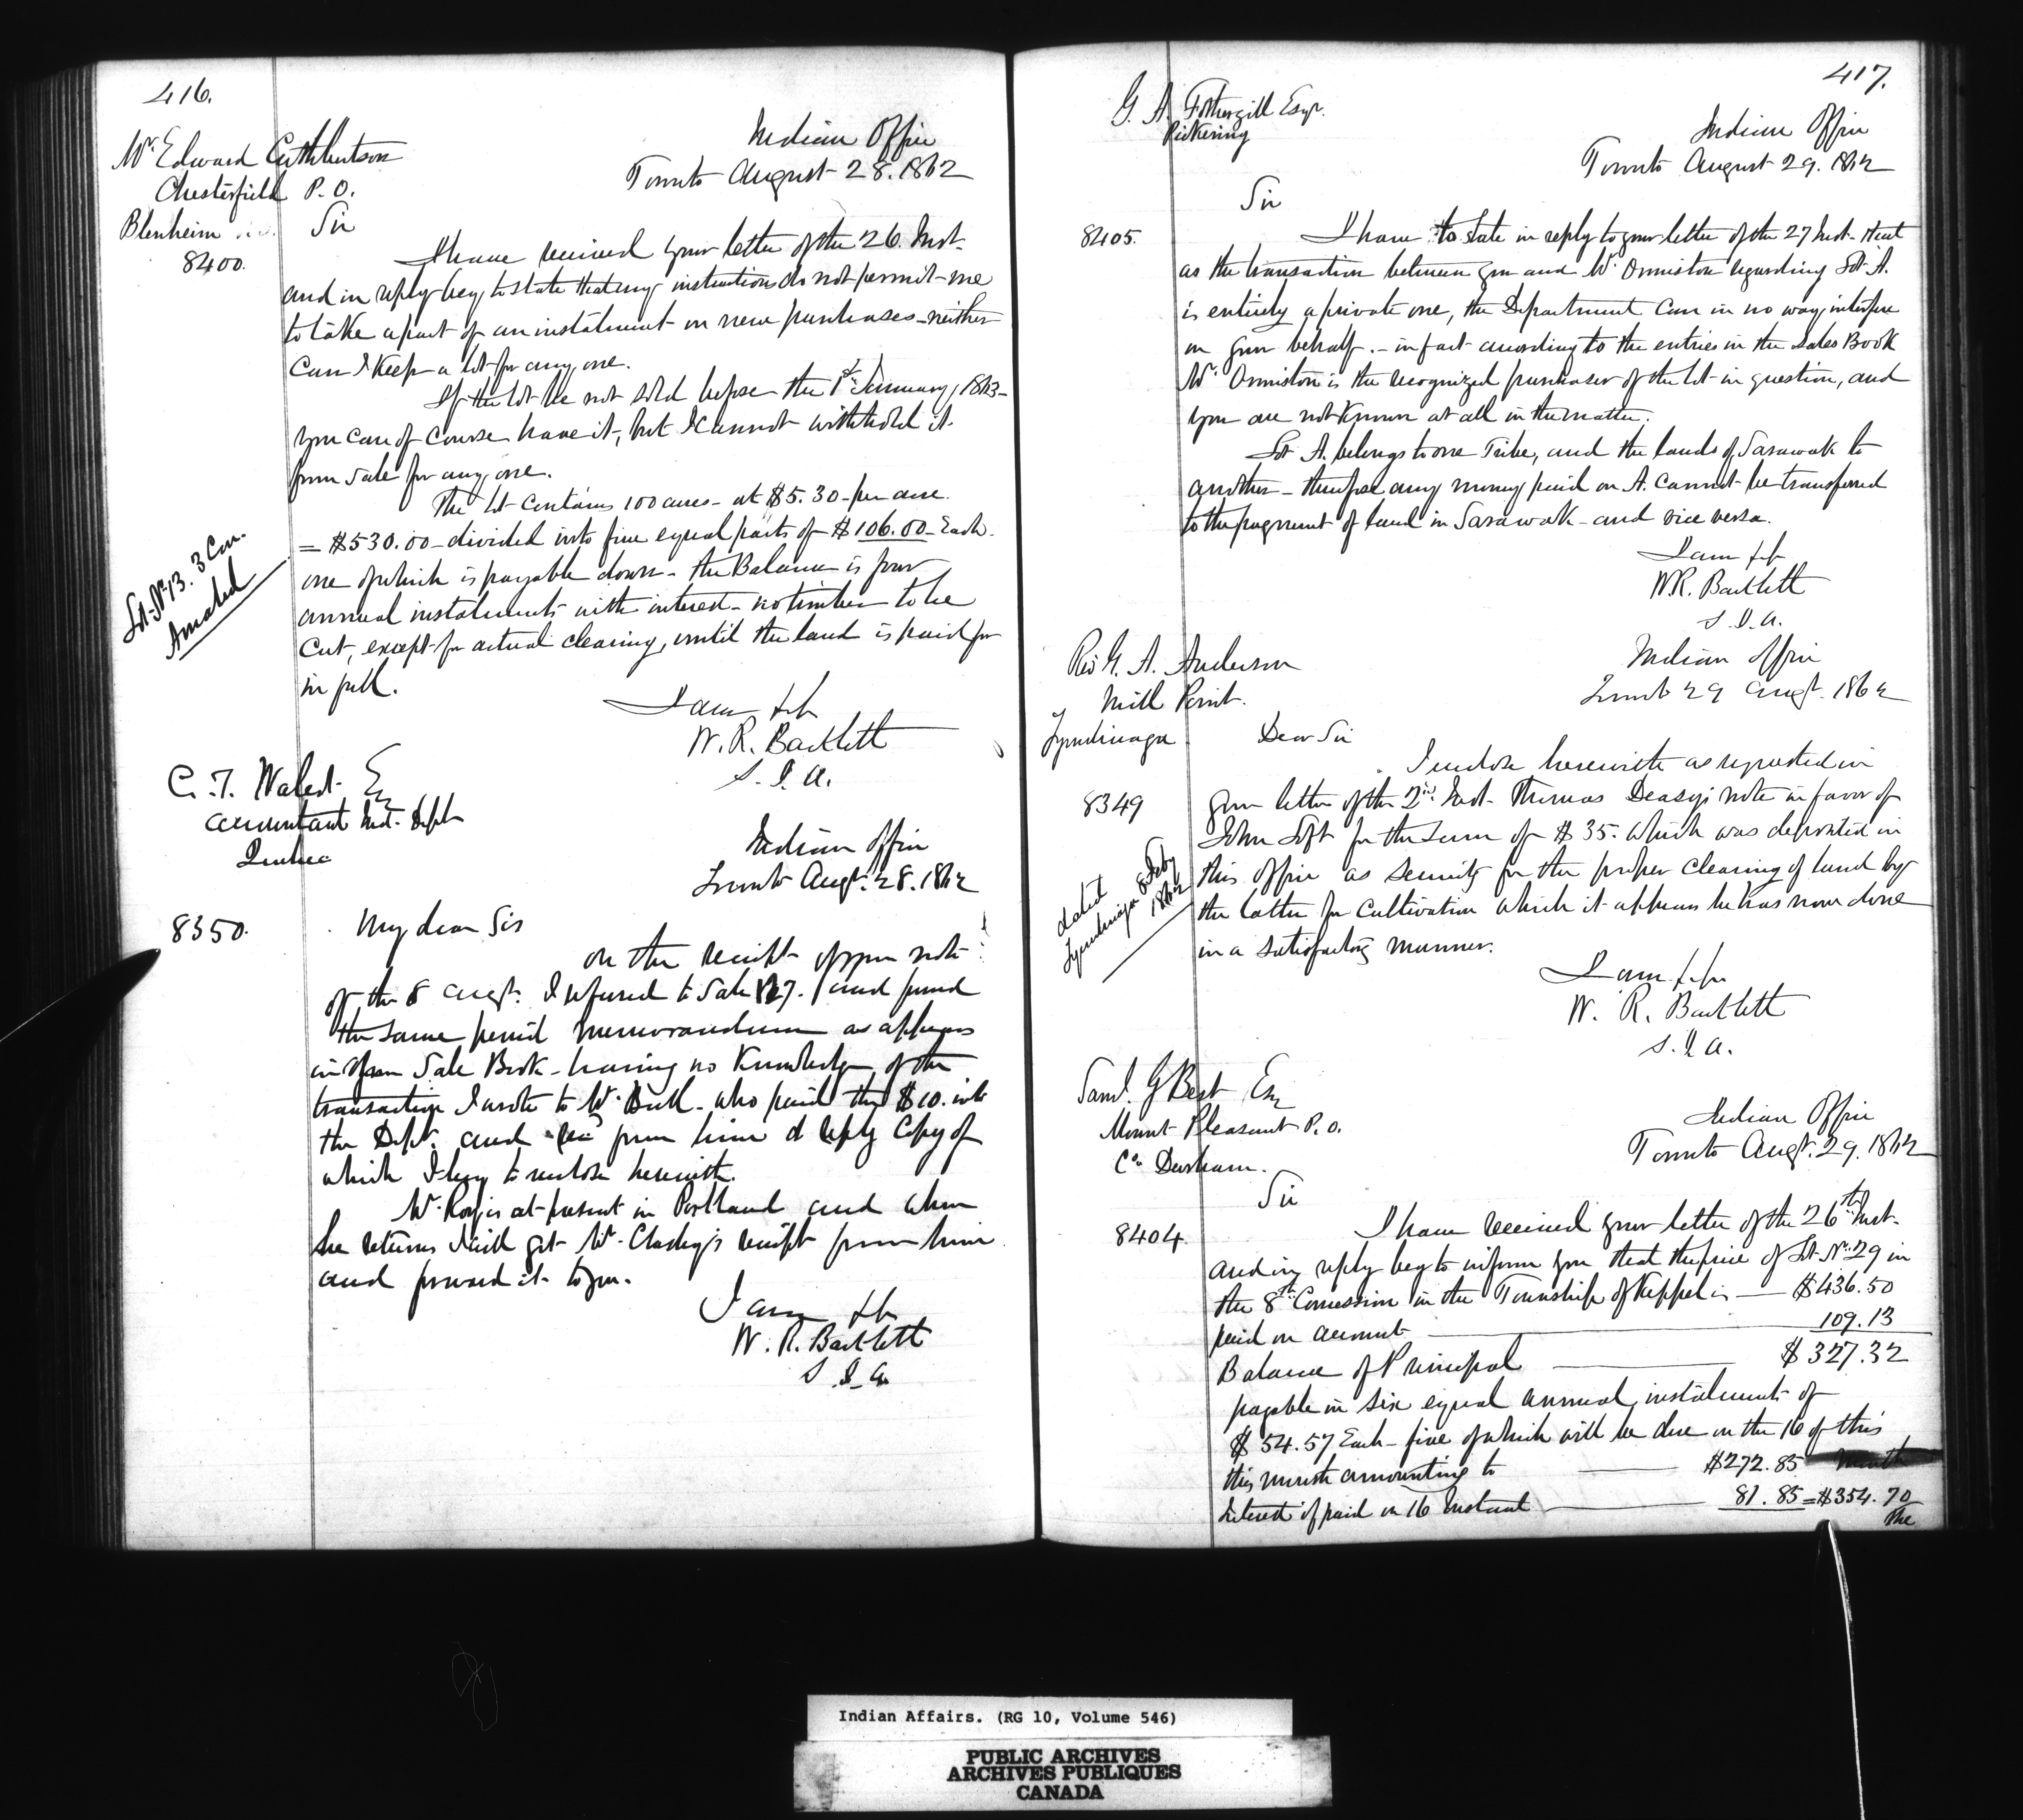 416.
Mr. Edward Cuthbertson
Chesterfield P.O.
Blenheim
8400.
Indian Office
Toronto August 28. 1862
Sir
I have received your letter of the 26 Inst.
and in reply beg to state that my instructions do not permit me
to take a part of an instalment on new purchases - neither
can I keep a lot for any one.
If the lot be not sold before the 1st January, 1863 -
you can of course have it, but I cannot withhold it
from sale for any one.
The lot contains 100 acres - at $5.30 - per acre.
= $530.00 - divided into five equal parts of $106.00 - Each -
one of which is payable down - the Balance is four
annual instalments with interest - no timber to be
cut, except for actual clearing, until the land is paid for
in full.
Lot No 13. 3 Con.
Amabel
I am &c
W. R. Bartlett
S. I. A.
C. T. Walcot Esq
Accountant Ind. Dept
Quebec
Indian Office
Toronto Augt. 28. 1862
8350.
My dear Sir
On the receipt of your note
of the 8 Augt. I referred to Sale 127. and found
the same pencil memorandum as appears
in your Sale Book - having no Knowledge of the
transaction I wrote to Mr. Bull - who paid the $10. into
the Dept. and recd from him a reply Copy of
which I beg to enclose herewith.
Mr. Roy is at present in Portland and when
he returns I will get Mr. receipt from him
and forward it to you.
I am &c
W. R. Bartlett
S. I. A.
417.
G. A. Fothergill Esqr.
Pickering
Indian Office
Toronto August 29. 1862
Sir
8405.
I have to state in reply to your letter of the 27 Inst. that
as the transaction between you and Mr Ormiston regarding Lot A.
is entirely a private one, the Department can in no way interfere
on your behalf. - in fact according to the entries in the Sales Book
Mr. Ormiston is the recognized purchaser of the lot in question, and
you are not Known at all in the matter.
Lot A. belongs to one Tribe, and the lands of Sarawak to
another - therefore any money paid on A. cannot be transferred
to the payment of land in Sarawak - and vice versa.
I am &c
W. R. Bartlett
S. I. A.
Rev G. A. Anderson
Mill Point.
Tyendinaga
Indian Office
Toronto 29 Augt. 1862
Dear Sir
8349
I enclose herewith as requested in
your letter of the 2nd. Inst. Thomas Deasy's note in favor of
John Loft for the sum of $35. which was deposited in
this Office as security for the proper clearing of land by
the latter for cultivation which it appears he has now done
in a satisfactory manner.
dated
Tyendinaga 8 Feby
1862
I am &c
W. R. Bartlett
S. I. A.
Saml. G Best Esq
Mount Pleasant P.O.
Co Durham.
Indian Office
Toronto Augt. 29. 1862
Sir
8404
I have received your letter of the 26th Inst.
and in reply beg to inform you that the price of Lot No. 29 in
the 8th Concession in the Township of Keppel is — $436.50
paid on account — 109.13
Balance of Principal — $327.32
payable in six equal annual instalments of
$54.57 Each - five of which will be due on the 16 of this
this month amounting to — $272.85 Month
Interest if paid on 16 Instant — 81.85 = $354.70
The
Indian Affairs. (RG 10, Volume 546)
PUBLIC ARCHIVES
ARCHIVES PUBLIQUES
CANADA